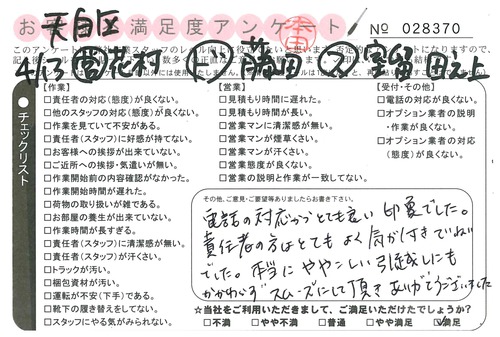 天白区
お 満足度アンケート
№ 028370
4/13
【作業】
□責任者の対応(態度)が良くない。
□他のスタッフの対応(態度)が良くない。
□作業を見ていて不安がある。
□責任者(スタッフ)に好感が持てない。
□お客様への挨拶が出来ていない。
□ご近所への挨拶・気遣いが無い。
□作業開始前の内容確認がなかった。
□作業開始時間が遅れた。
□荷物の取り扱いが雑である。
□お部屋の養生が出来ていない。
□作業時間が長すぎる。
□責任者(スタッフ)に清潔感が無い。
□責任者(スタッフ)が汗くさい。
□トラックが汚い。
□梱包資材が汚い。
□運転が不安(下手)である。
□靴下の履き替えをしてない。
□スタッフにやる気がみられない。
チェックリスト
【営業】
□見積もり時間に遅れた。
□見積もり時間が長い。
□営業マンに清潔感が無い。
□営業マンが煙草くさい。
□営業マンが汗くさい。
□営業態度が良くない。
□営業の説明と作業が一致してない。
【受付・その他】
□電話の対応が良くない。
□オプション業者の説明
・作業が良くない。
□オプション業者の対応
(態度)が良くない。
その他、ご意見・ご要望等ありましたらお書き下さい。
電話の対応がとても良い印象でした。
責任者の方はとてもよく気が付きていね
でした。本当にややこしい引越しにも
かかわらずスムーズにして頂きありがとうございました
☆当社をご利用いただきまして、ご満足いただけたでしょうか?
□不満 □やや不満 □普通 □やや満足 ☑満足